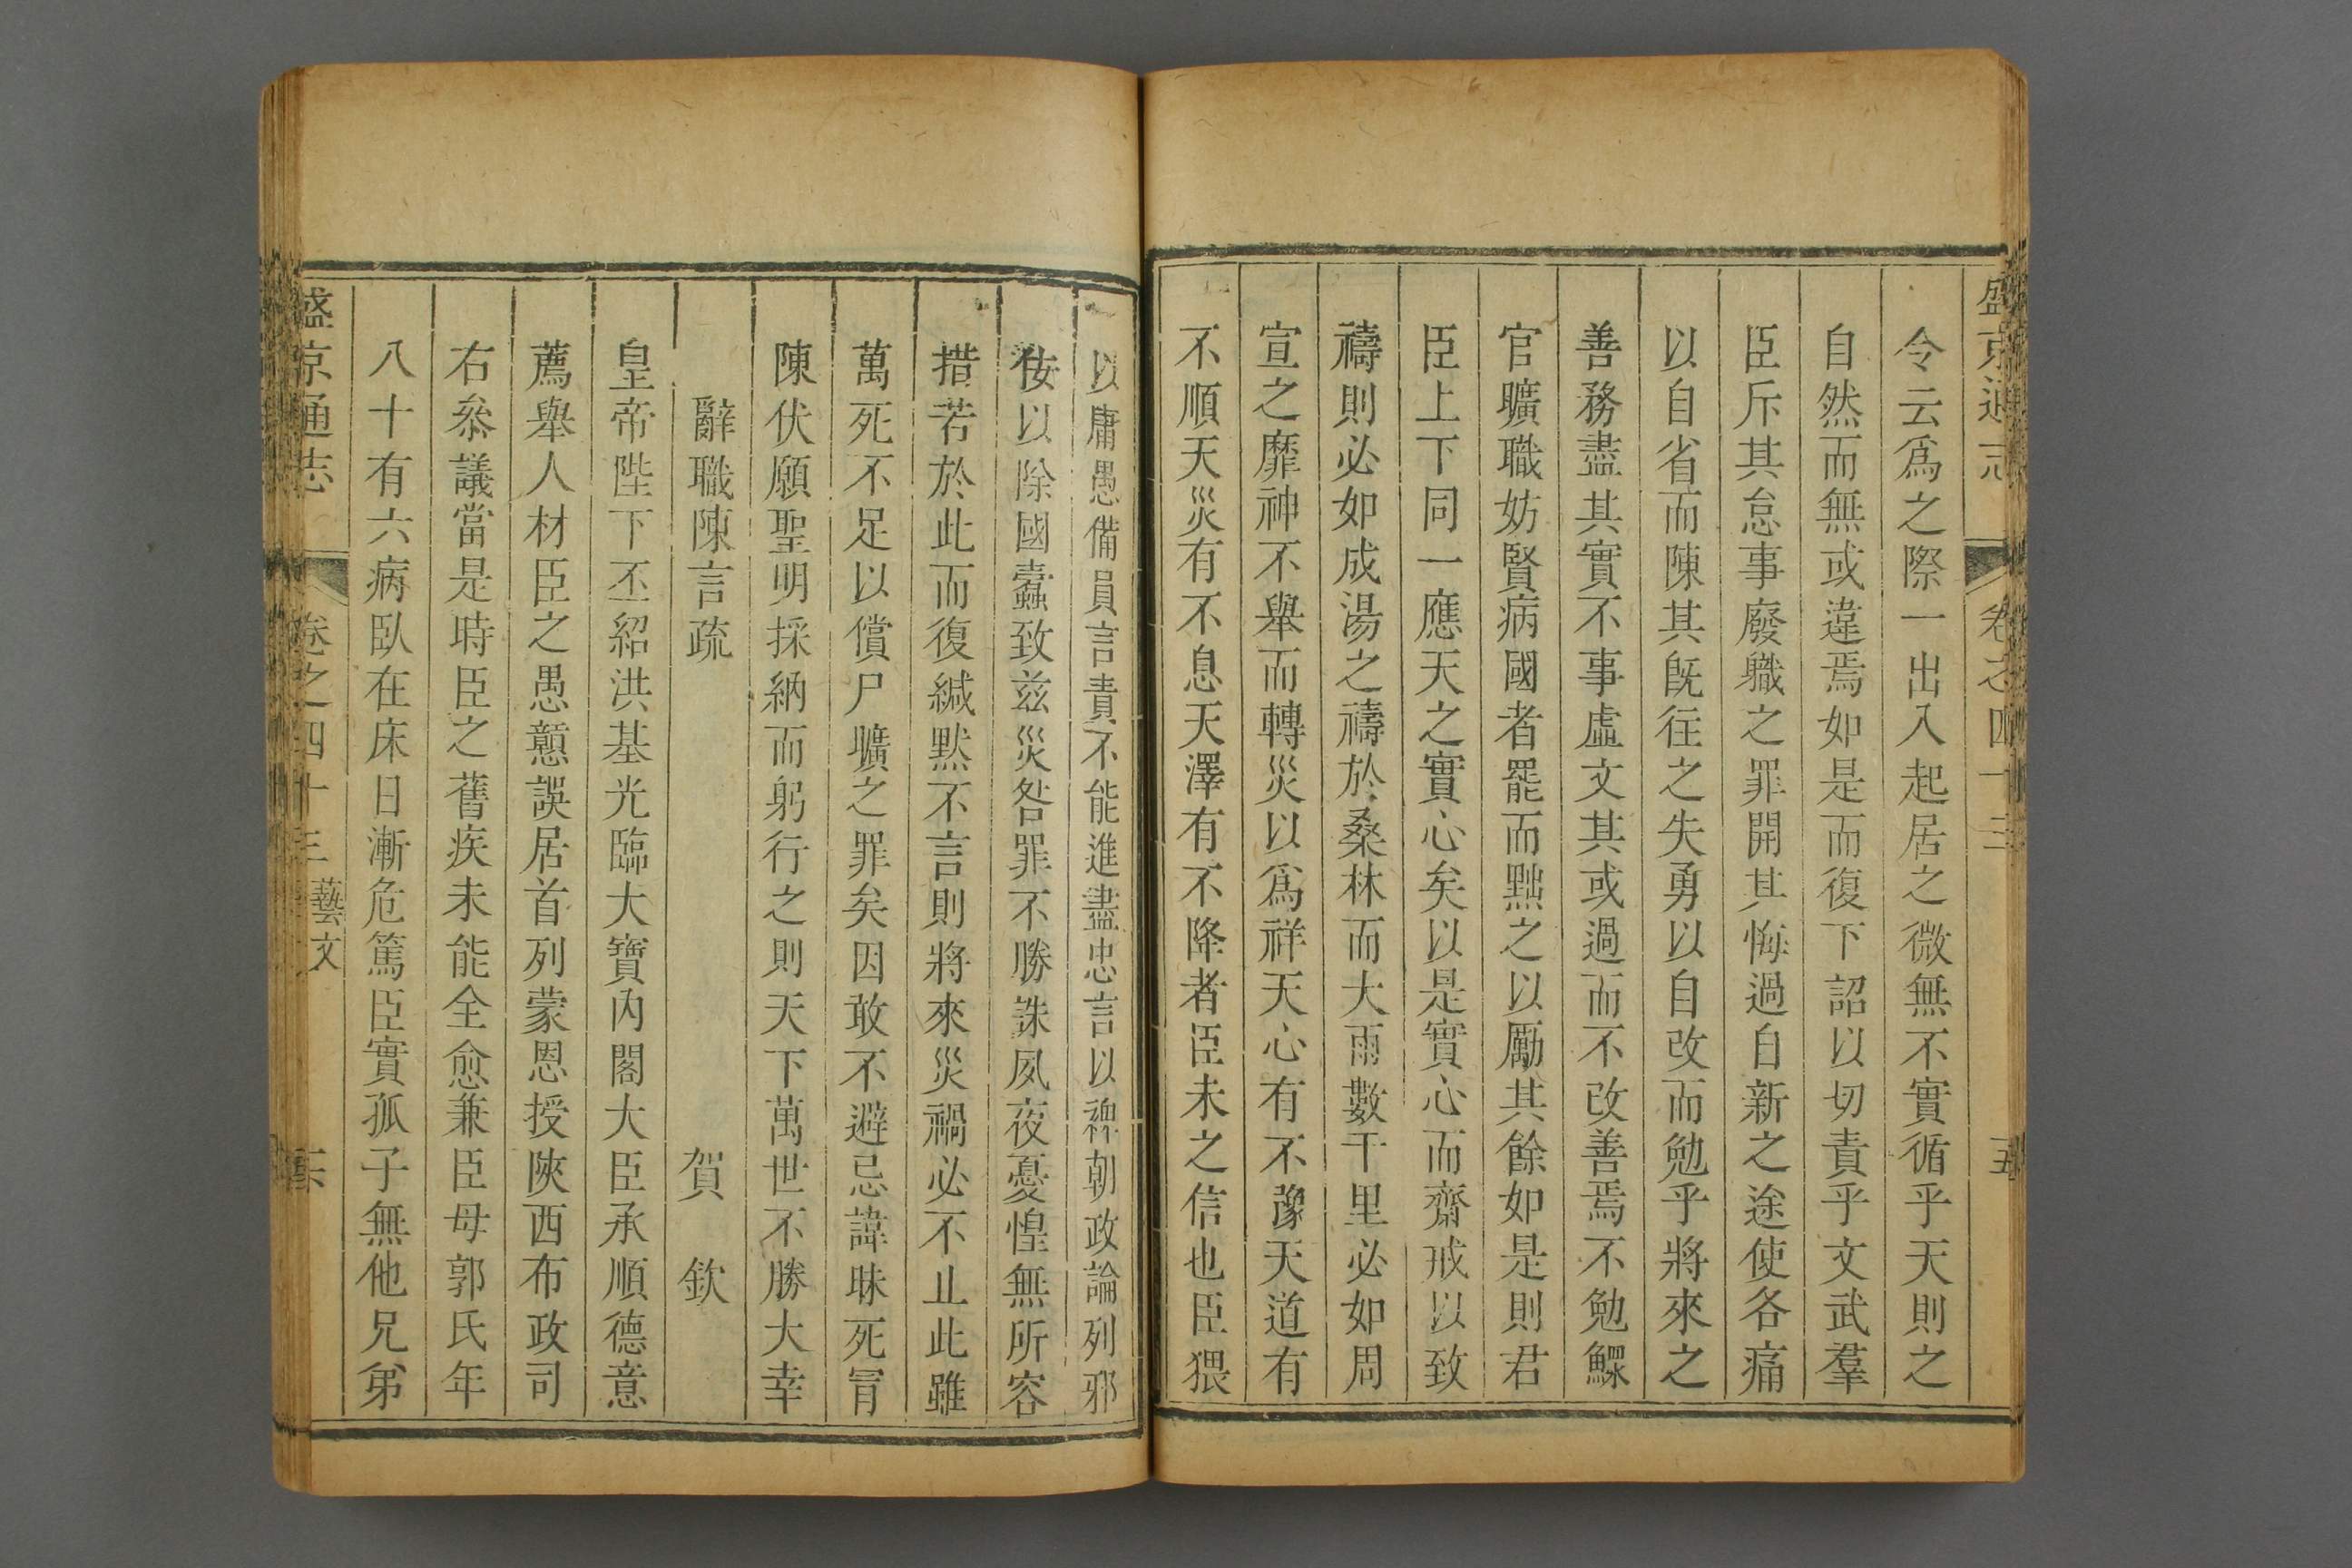 盛京通志 卷之四十三 五
令云爲之際一出入起居之微無不實循乎天則之
自然而無或違焉如是而復下詔以切責乎文武羣
臣斥其怠事廢職之罪開其悔過自新之途使各痛
以自省而陳其旣往之失勇以自改而勉乎將來之
善務盡其實不事虛文其或過而不改善焉不勉鰥
官曠職妨賢病國者罷而黜之以勵其餘如是則君
臣上下同一應天之實心矣以是實心而齋戒以致
禱則必如成湯之禱於桑林而大雨數千里必如周
宣之靡神不舉而轉災以爲祥天心有不豫天道有
不順天災有不息天澤有不降者臣未之信也臣猥
以庸愚備員言責不能進盡忠言以裨朝政論列邪
佞以除國蠹致兹災咎罪不勝誅夙夜憂惶無所容
措若於此而復緘默不言則將來災禍必不止此雖
萬死不足以償尸曠之罪矣因敢不避忌諱昧死冐
陳伏願聖明採納而躬行之則天下萬世不勝大幸
辭職陳言疏 賀 欽
皇帝陛下丕紹洪基光臨大寶內閣大臣承順德意
薦舉人材臣之愚戇誤居首列蒙恩授陜西布政司
右叅議當是時臣之舊疾未能全愈兼臣母郭氏年
八十有六病臥在床日漸危篤臣實孤子無他兄弟
盛京通志 卷之四十三 藝文 六